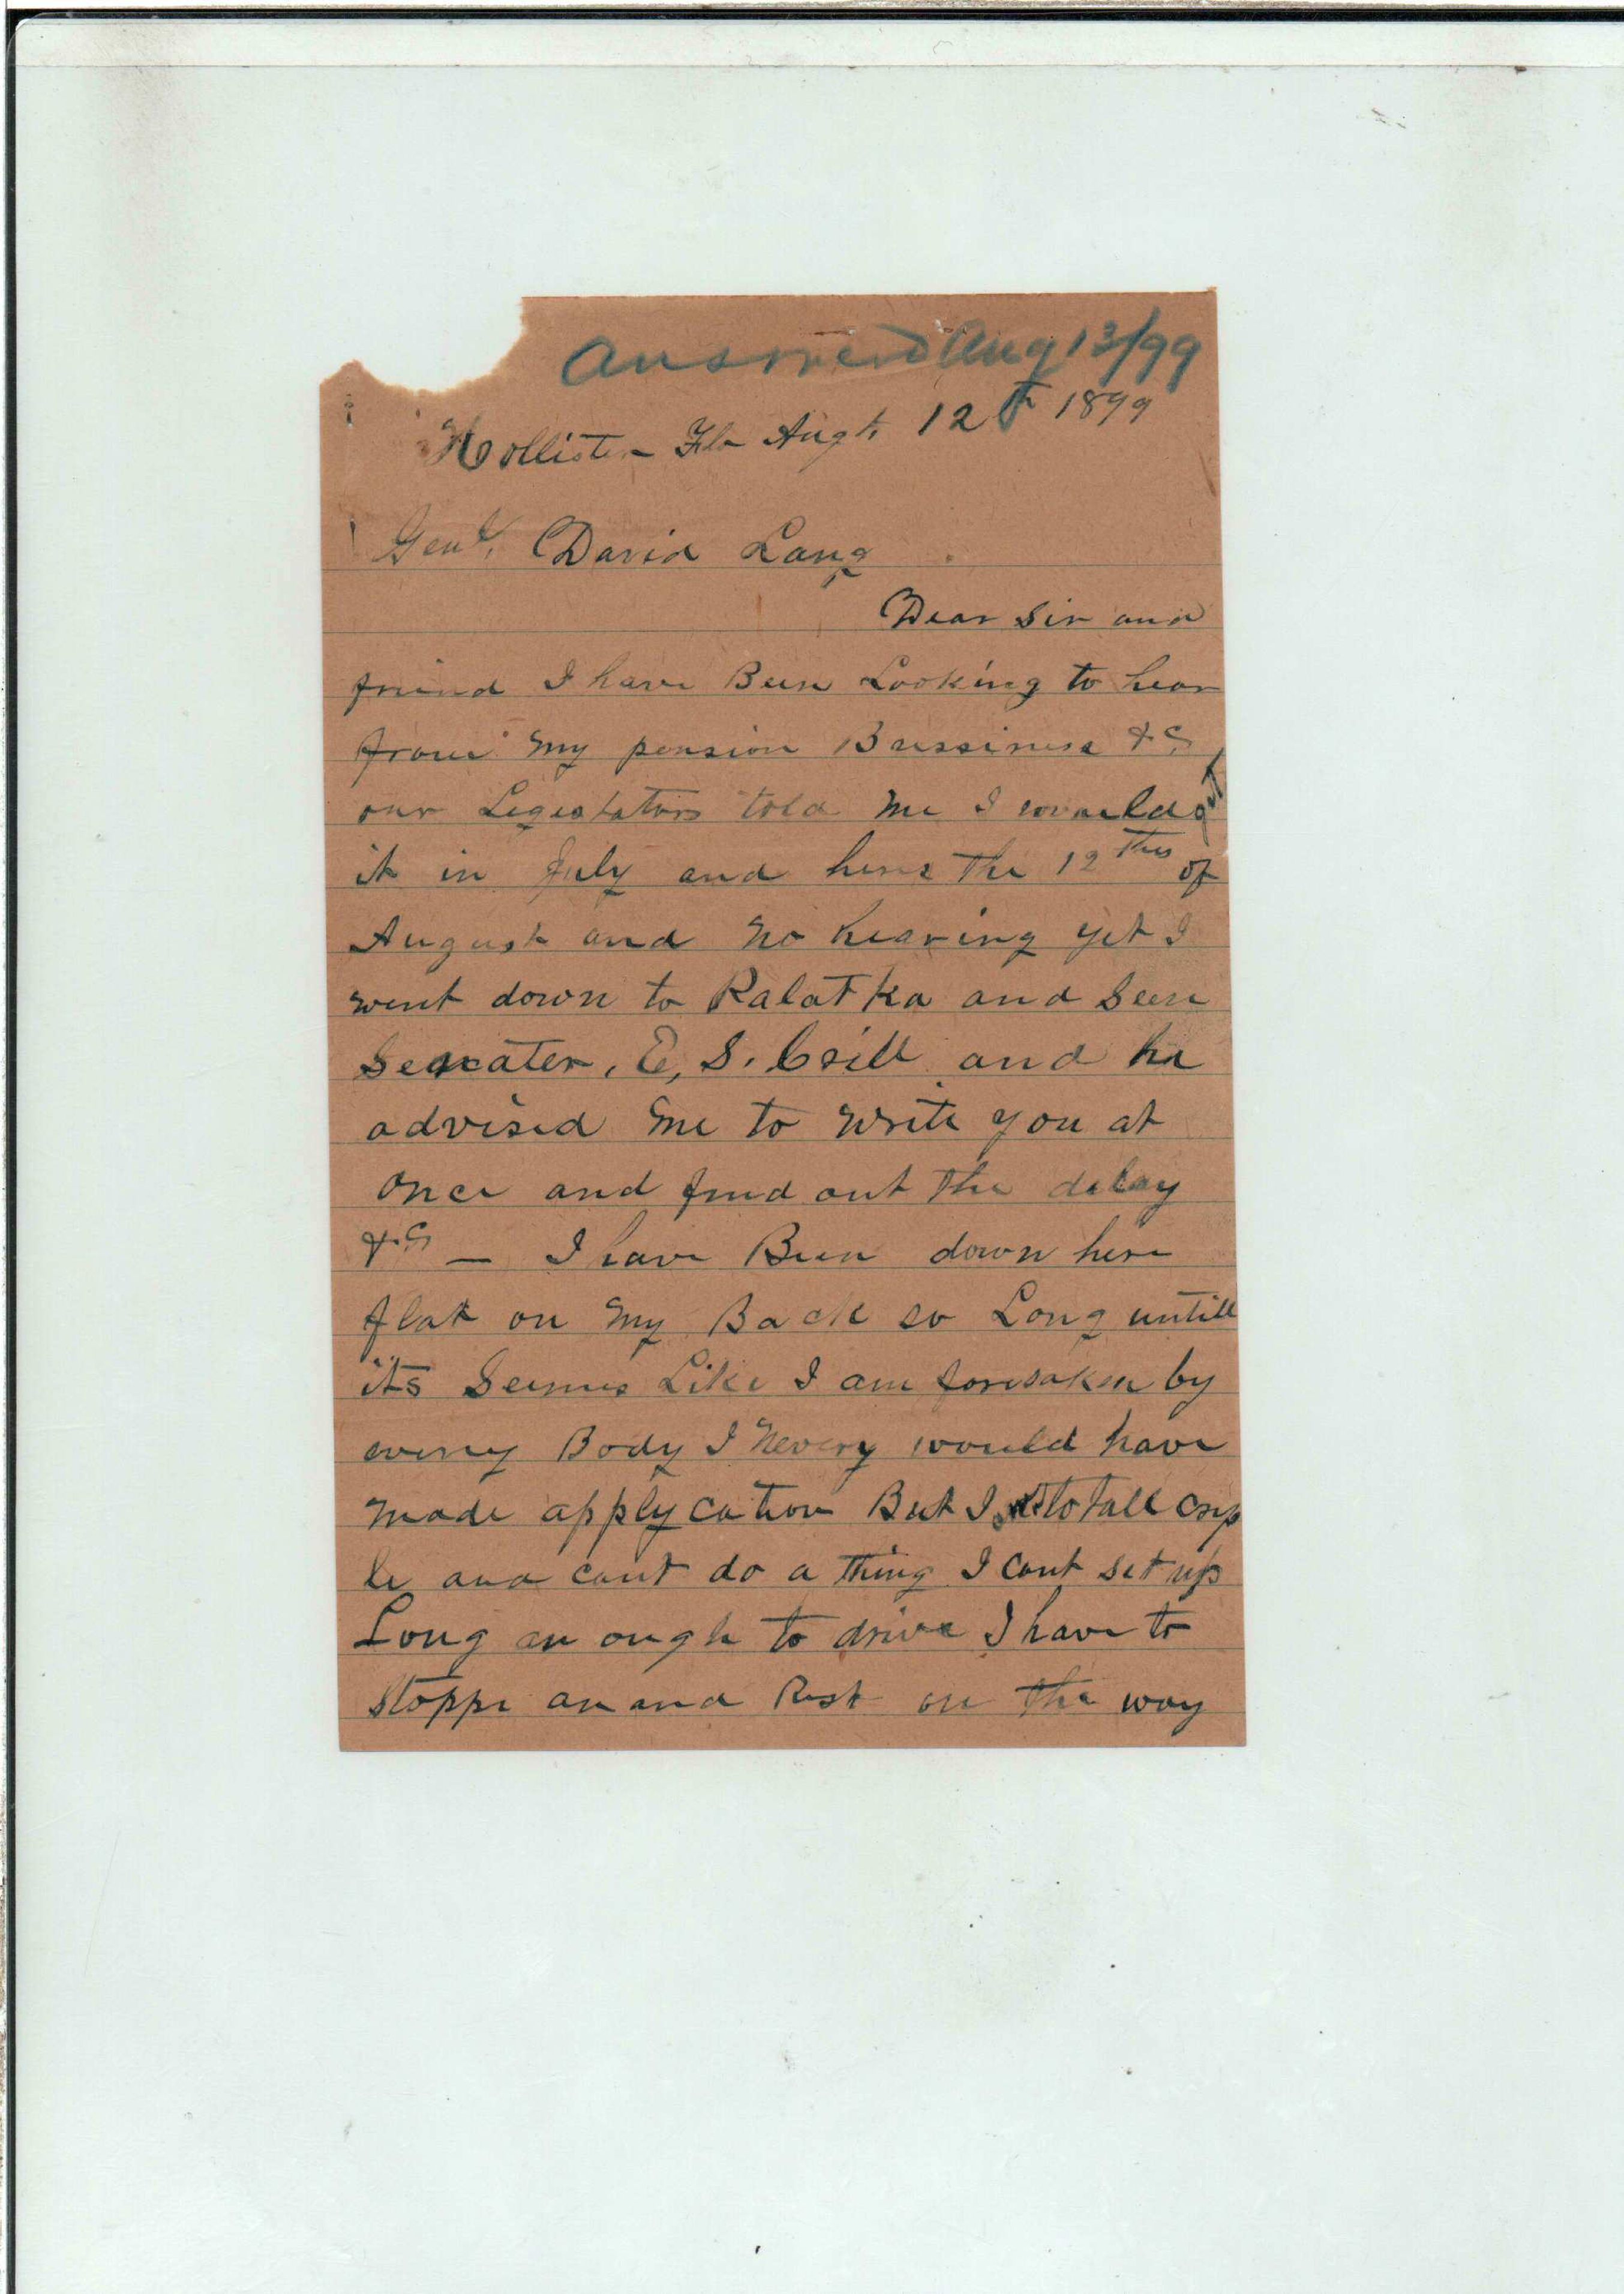 Answered Aug 13/99
Hollister Fla Augt, 12th 1899
Genl, David Lang
Dear Sir and
friend I have Been Looking to hear
from my pension Bussiness &c
our Legeslators told me I would get
it in July and here the 12 ths of
August and no hearing yet I
went down to Palatka and Seen
Senater, E, S. Crill and he
advised me to write you at
once and find out the delay
&c — I have Been down here
flat on my Back so Long untill
its Seemes Like I am foresaken by
every Body I Nevery would have
made applycation But I totall crip
le and cant do a thing I cant set up
Long an ough to drive I have to
stoppe an and Rest on the way